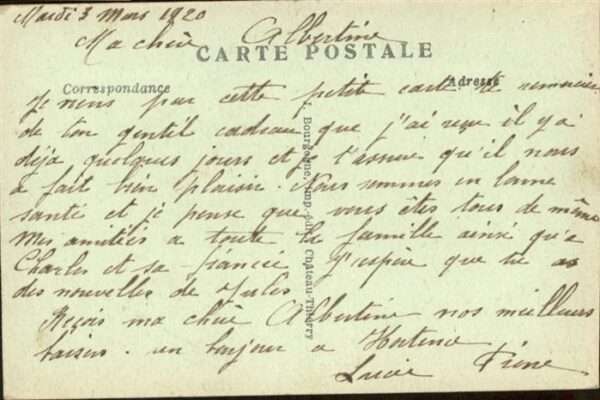 Mardi 3 Mars 1920
Ma chère Albertine
CARTE POSTALE
Correspondance
Adresse
Je viens par cette petite carte te remercier
de ton gentil cadeau que j'ai reçu il y a
déja quelques jours et je t'assure qu'il nous
a fait bien plaisir. Nous sommes en bonne
santé et je pense que vous êtes tous de même
Mes amitiés a toute la famille ainsi qu'a
Charles et sa fiancée J'espère que tu as
des nouvelles de Jules
Reçois ma chère Albertine nos meilleurs
baisers. un bonjour a Hortence
Lucie
J. Bourgogne, Château-Thierry